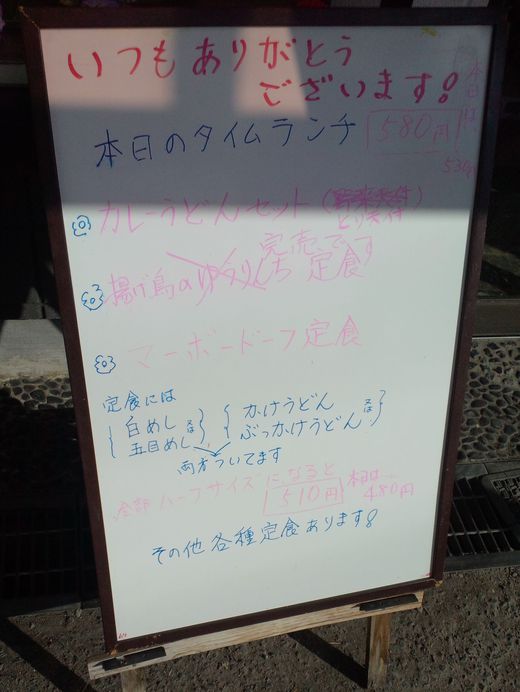 いつもありがとう
ございます!
本日のタイムランチ 580円
本日は、
530円
① カレーうどんセット (野菜天付)
とり天付
完売です
② 揚げ鳥のゆうりんち 定食
③ マーボードーフ定食
定食には
白めし 又は 五目めし
かけうどん 又は ぶっかけうどん
両方ついてます
全部 ハーフサイズになると
510円 本日は 480円
その他各種定食あります!